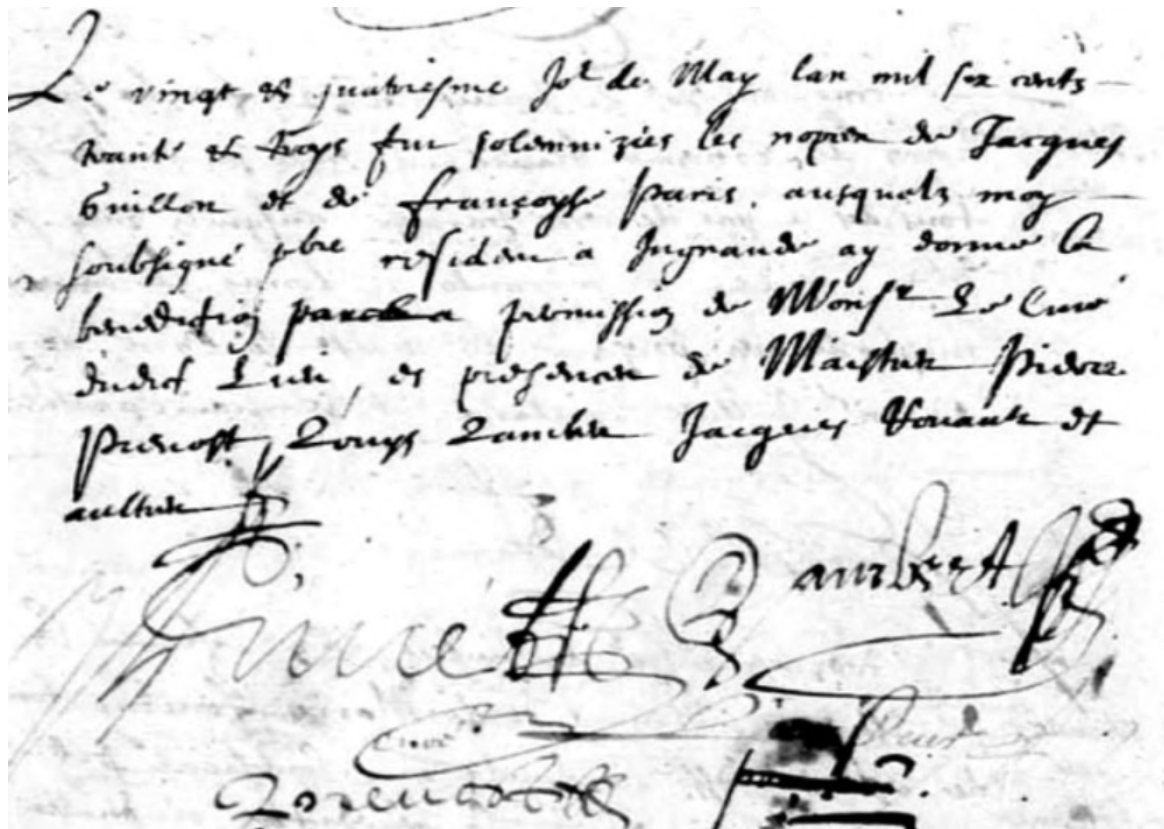 Le vingt & quatriesme Jor de May lan mil six cents
trante & troys fur solemnizées les nopces de Jacques
Guillon et de françoyse Paris, ausquelz moy
soubsigné pbre residen a Ingrande ay donné la
benediction par la permission de Monsr Le Curé
dudict Lieu, es presences de Maistres Pierre
Prevost, Louys Lambert Jacques et
aultres
Lambert